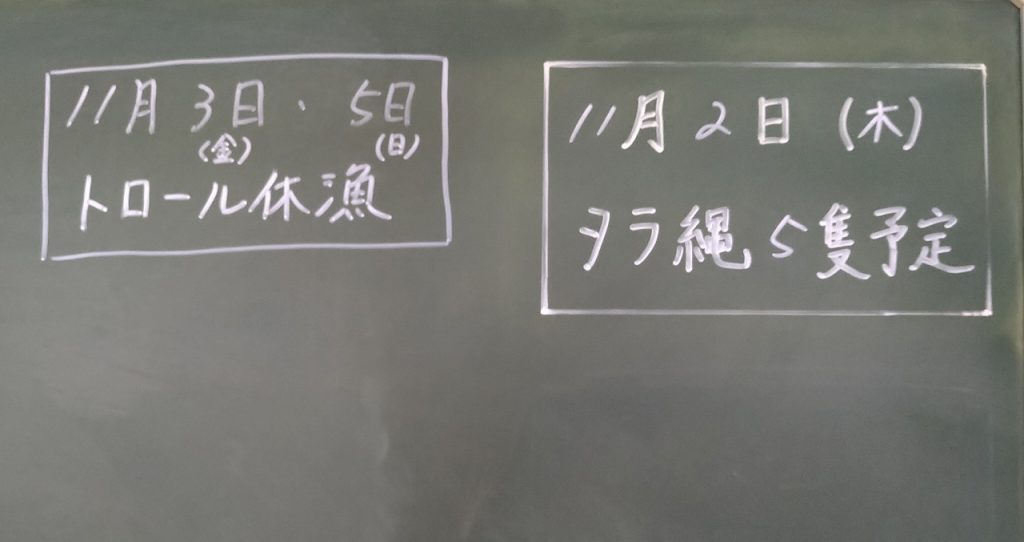 11月3日・5日
(金) (日)
トロール休漁
11月2日(木)
タラ縄5隻予定